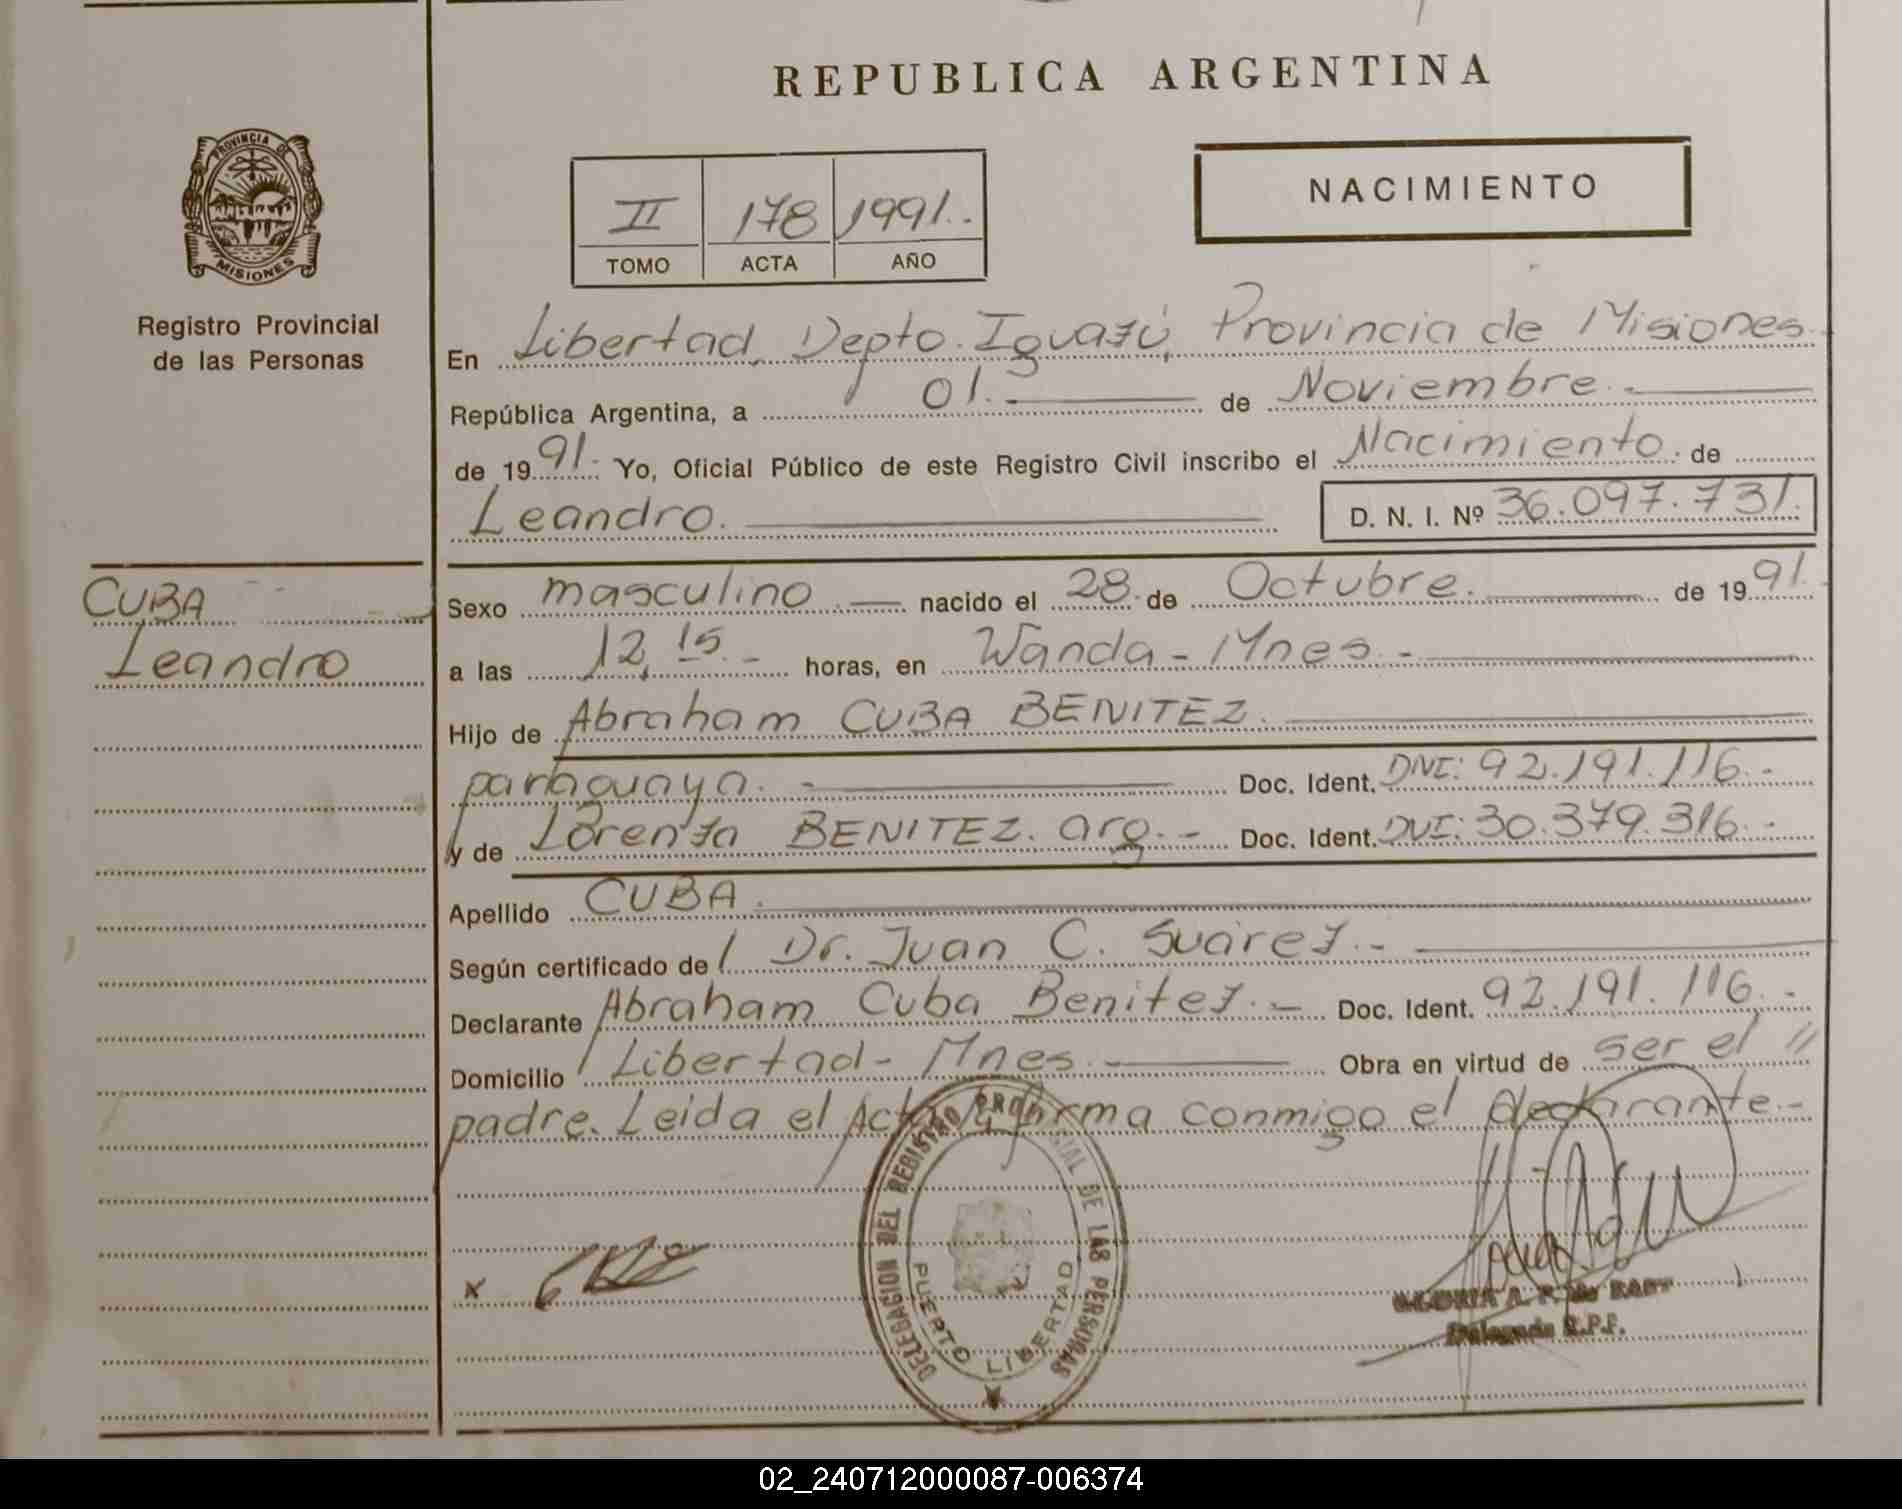 REPUBLICA ARGENTINA
PROVINCIA DE
MISIONES
Registro Provincial
de las Personas
II 178 1991.
TOMO ACTA AÑO
NACIMIENTO
En Libertad, Depto. Iguazú, Provincia de Misiones.
República Argentina, a 01. de Noviembre.
de 1991. Yo, Oficial Público de este Registro Civil inscribo el Nacimiento. de
Leandro.
D. N. I. Nº 36.097.731.
CUBA
Leandro
Sexo masculino. nacido el 28 de Octubre. de 1991.
a las 12,15.- horas, en Wanda - Mnes.-
Hijo de Abraham CUBA BENITEZ.
paraguaya. Doc. Ident. DNI: 92.191.116.-
y de Lorenza BENITEZ. arg.- Doc. Ident. DNI: 30.379.316.-
Apellido CUBA.
Según certificado de Dr. Juan C. Suárez.-
Declarante Abraham Cuba Benitez.- Doc. Ident. 92.191.116.-
Domicilio Libertad - Mnes. Obra en virtud de ser el //
padre. Leida el Acta, firma conmigo el declarante.-
x
DELEGACION DEL REGISTRO PROVINCIAL DE LAS PERSONAS
PUERTO LIBERTAD
GLORIA A. F. de
Delegada R.P.P.
02_240712000087-006374